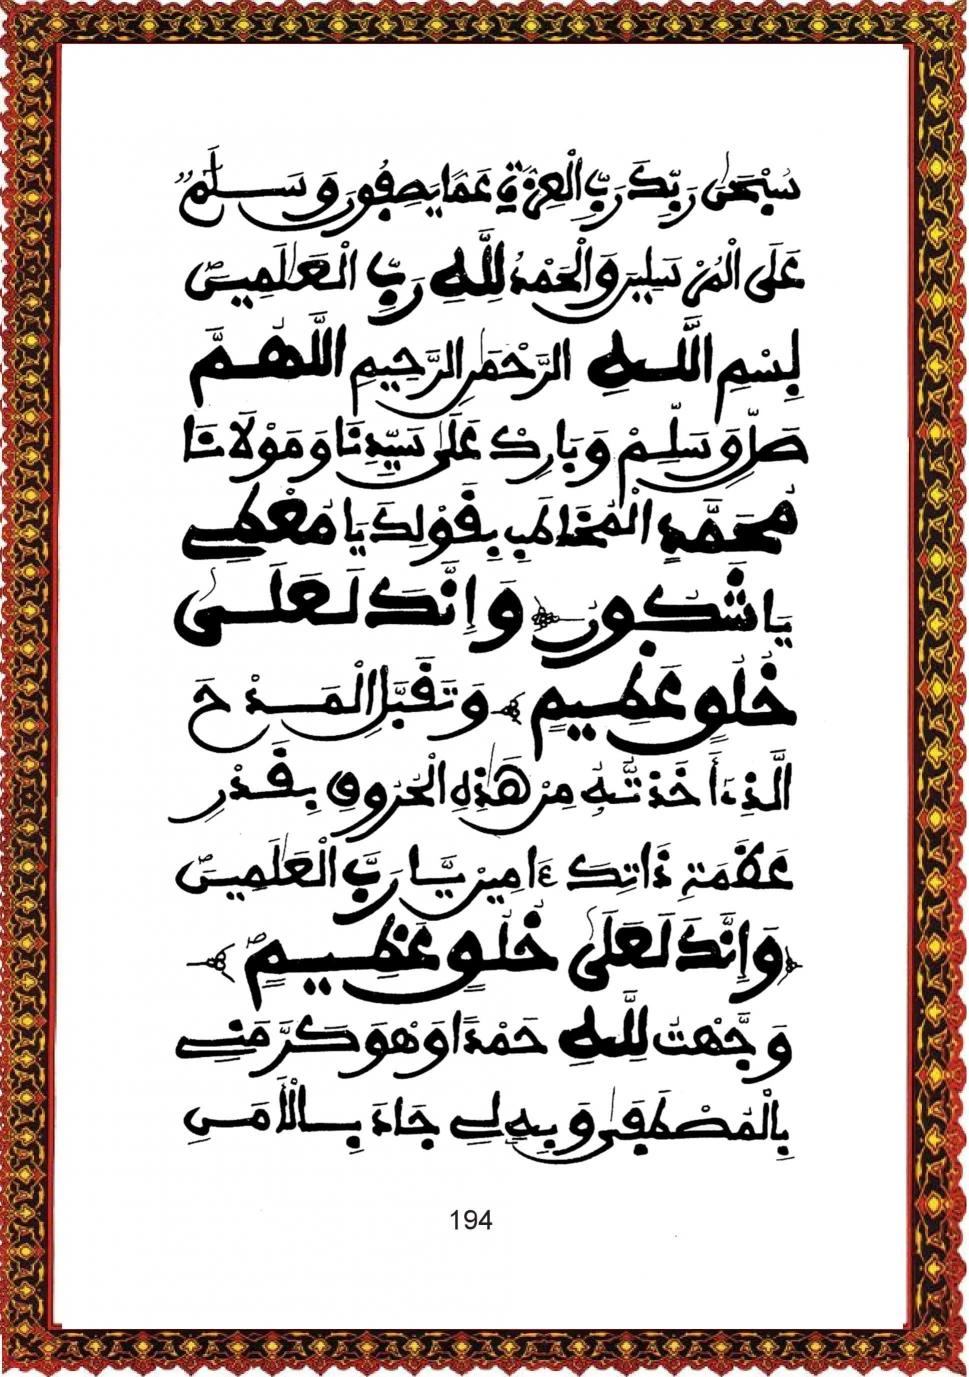 سُبْحَٰنَ رَبِّكَ رَبِّ الْعِزَّةِ عَمَّا يَصِفُونَ وَسَلَٰمٌ
عَلَى الْمُرْسَلِينَ وَالْحَمْدُ لِلَّهِ رَبِّ الْعَٰلَمِينَ
بِسْمِ اللَّهِ الرَّحْمَٰنِ الرَّحِيمِ اللَّهُمَّ
صَلِّ وَسَلِّمْ وَبَارِكْ عَلَى سَيِّدِنَا وَمَوْلَانَا
مُحَمَّدٍ الْمُخَاطَبِ بِقَوْلِكَ يَا مُعْطِي
يَا شَكُورُ وَإِنَّكَ لَعَلَىٰ
خُلُقٍ عَظِيمٍ وَتَقَبَّلِ الْمَدْحَ
الَّذِي أَخَذْتُهُ مِنْ هَٰذِهِ الْحُرُوفِ بِقَدْرِ
عَظَمَةِ ذَاتِكَ ءَامِينَ يَا رَبَّ الْعَٰلَمِينَ
وَإِنَّكَ لَعَلَىٰ خُلُقٍ عَظِيمٍ
وَجَّهْتُ لِلَّهِ حَمْدًا وَهْوَ كَرَّمَنِي
بِالْمُصْطَفَىٰ وَبِهِ لِي جَادَ بِالْأَمَنِ
194